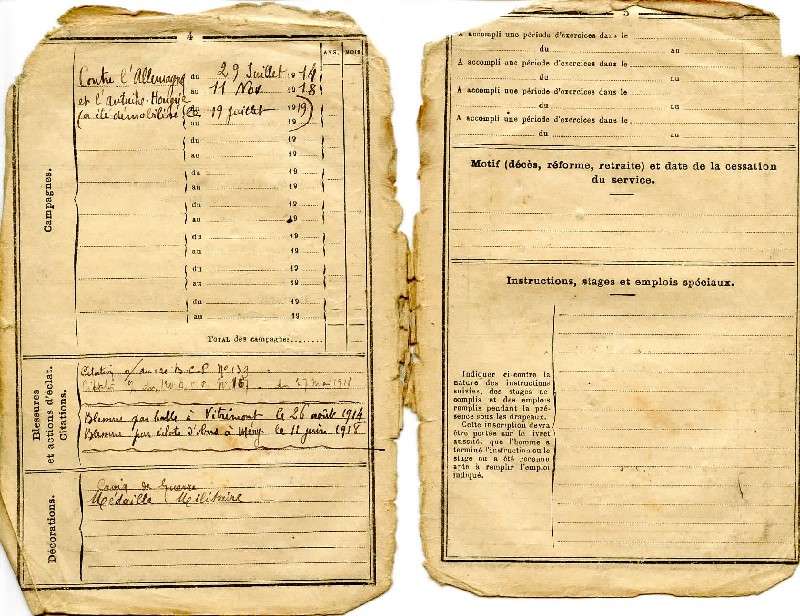 4
ANS. MOIS.
Campagnes.
Contre l'Allemagne du 29 Juillet 1914
et l'Autriche-Hongrie au 11 Nov 1918
(a été démobilisé le 19 Juillet 1919)
au 19
du 19
au 19
du 19
au 19
du 19
au 19
du 19
au 19
du 19
au 19
du 19
au 19
TOTAL des campagnes
Blessures
et actions d'éclat.
Citations.
Citation au 120 B.C.P. N° 139
Citation N° 161 du 27 Mai 1918
Blessure par balle à Vitrimont le 26 août 1914
Blessure par éclats d'obus à Méry le 11 juin 1918
Décorations.
Croix de Guerre
Médaille Militaire
5
A accompli une période d'exercices dans le
du au
A accompli une période d'exercices dans le
du au
A accompli une période d'exercices dans le
du au
A accompli une période d'exercices dans le
du au
Motif (décès, réforme, retraite) et date de la cessation
du service.
Instructions, stages et emplois spéciaux.
Indiquer ci-contre la
nature des instructions
suivies, des stages ac
complis et des emplois
remplis pendant la pré-
sence sous les drapeaux.
Cette inscription devra
être portée sur le livret
aussitôt que l'homme a
terminé l'instruction ou le
stage ou a été reconnu
apte à remplir l'emploi
indiqué.